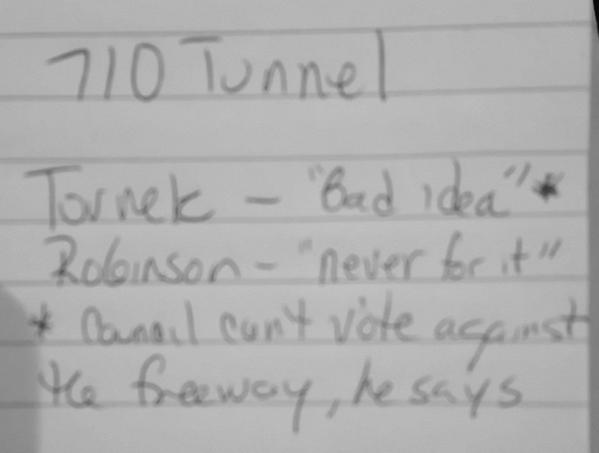 710 Tunnel
Tornek - "Bad idea" *
Robinson - "never for it"
* Council can't vote against
the freeway, he says